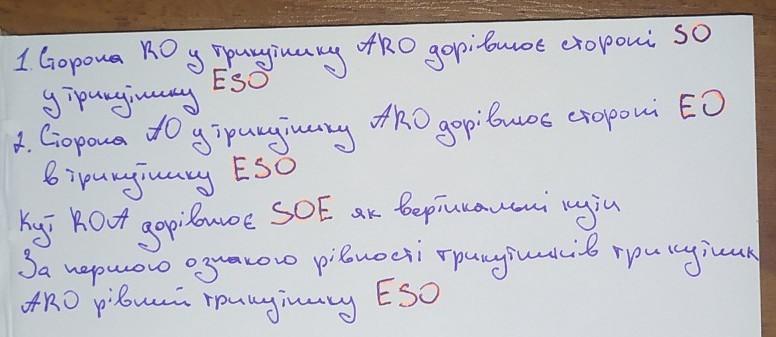 1. Сторона RO у трикутнику ARO дорівнює стороні SO
у трикутнику ESO
2. Сторона AO у трикутнику ARO дорівнює стороні EO
в трикутнику ESO
Кут ROA дорівнює SOE як вертикальні кути
За першою ознакою рівності трикутників трикутник
ARO рівний трикутнику ESO